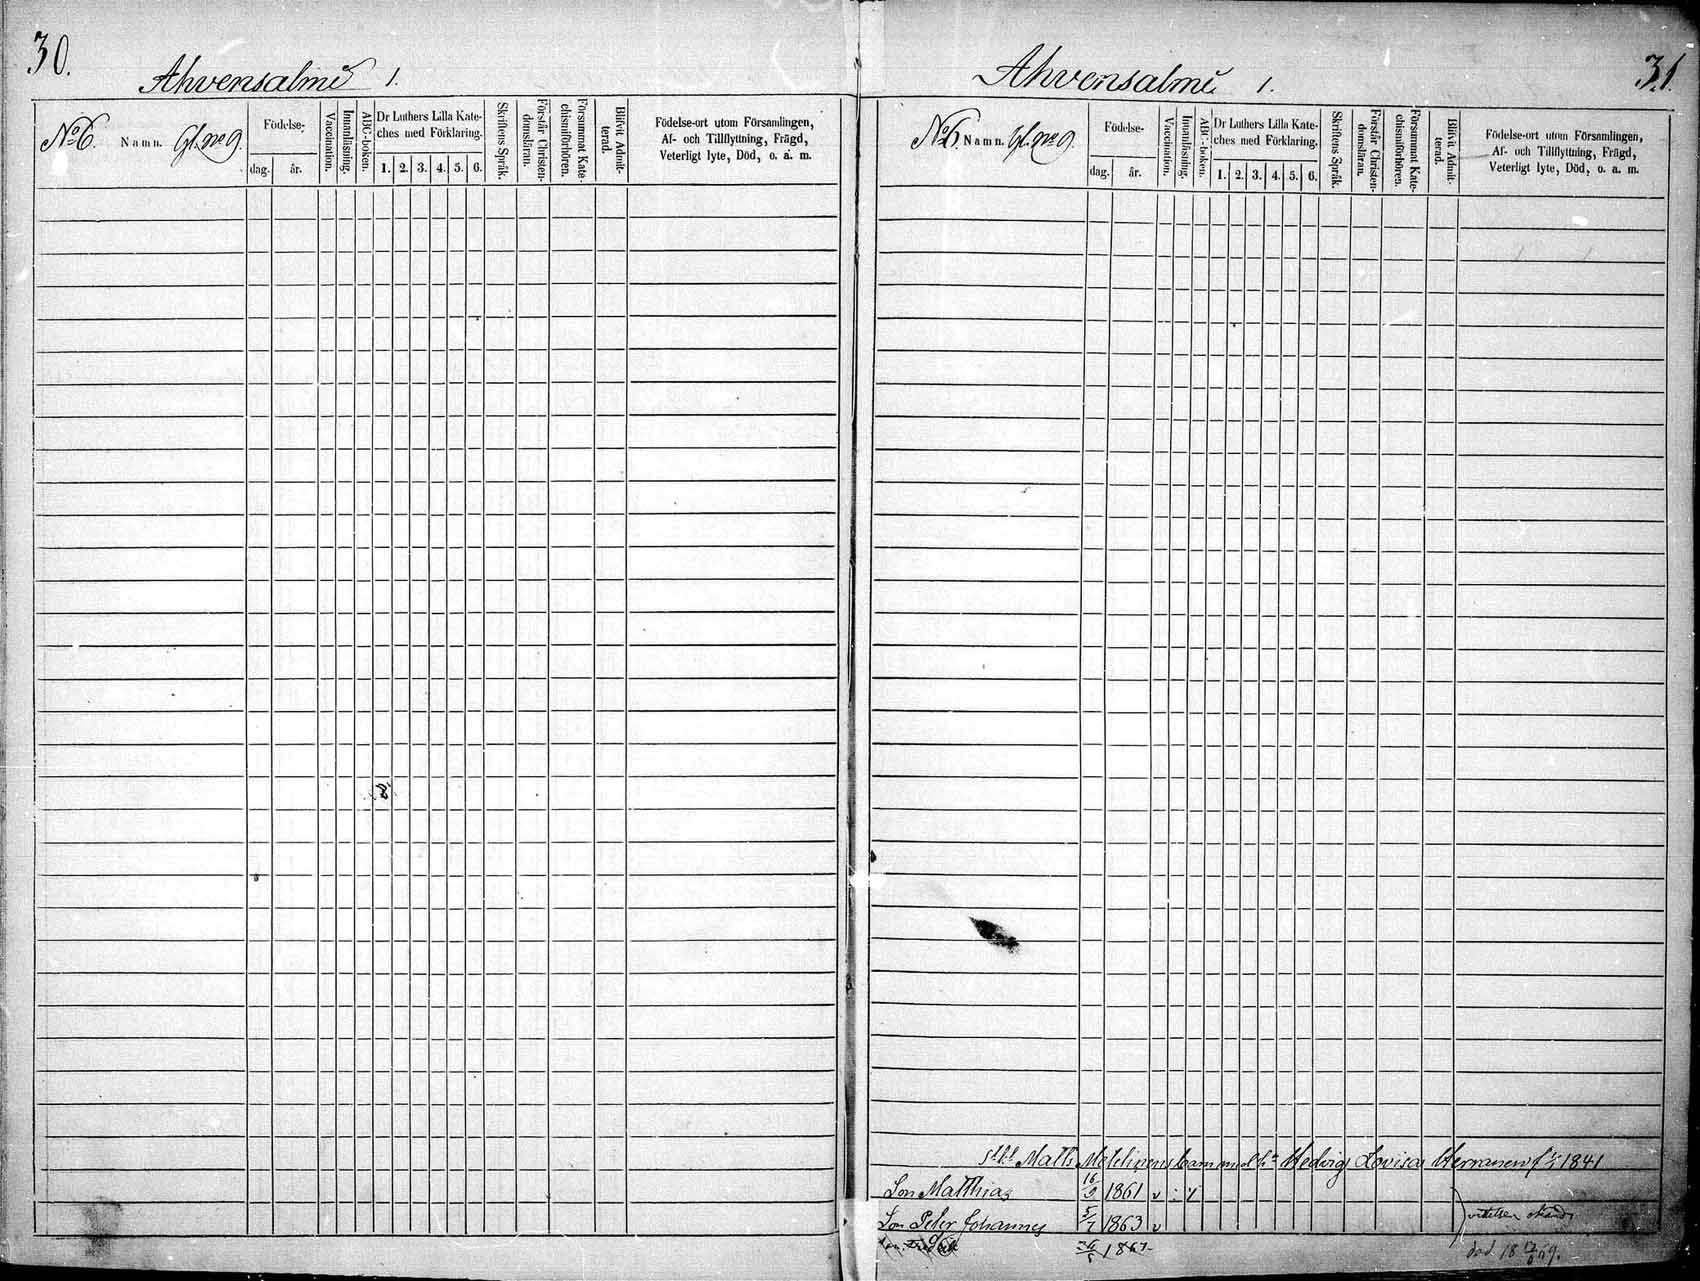 30.
Ahvensalmi 1.
No 6. Namn. Gl. no 9.
Födelse-
dag. år.
Vaccination.
Innanläsning.
ABC-boken.
Dr Luthers Lilla Kate-
ches med Förklaring.
1. 2. 3. 4. 5. 6.
Skriftens Språk.
Förstår Christen-
domsläran.
Försummat Kate-
chismiförhören.
Blifvit Admit-
terad.
Födelse-ort utom Församlingen,
Af- och Tillflyttning, Frägd,
Veterligt lyte, Död, o. a. m.
Ahvensalmi 1.
31.
No 6. Namn. Gl. no 9.
Födelse-
dag. år.
Vaccination.
Innanläsning.
ABC-boken.
Dr Luthers Lilla Kate-
ches med Förklaring.
1. 2. 3. 4. 5. 6.
Skriftens Språk.
Förstår Christen-
domsläran.
Försummat Kate-
chismiförhören.
Blifvit Admit-
terad.
Födelse-ort utom Församlingen,
Af- och Tillflyttning, Frägd,
Veterligt lyte, Död, o. a. m.
Matts barn med Hedvig Lovisa Herranen 1841
Son Matthias 16/9 1861
Son Peter Johannes 5/7 1863
död